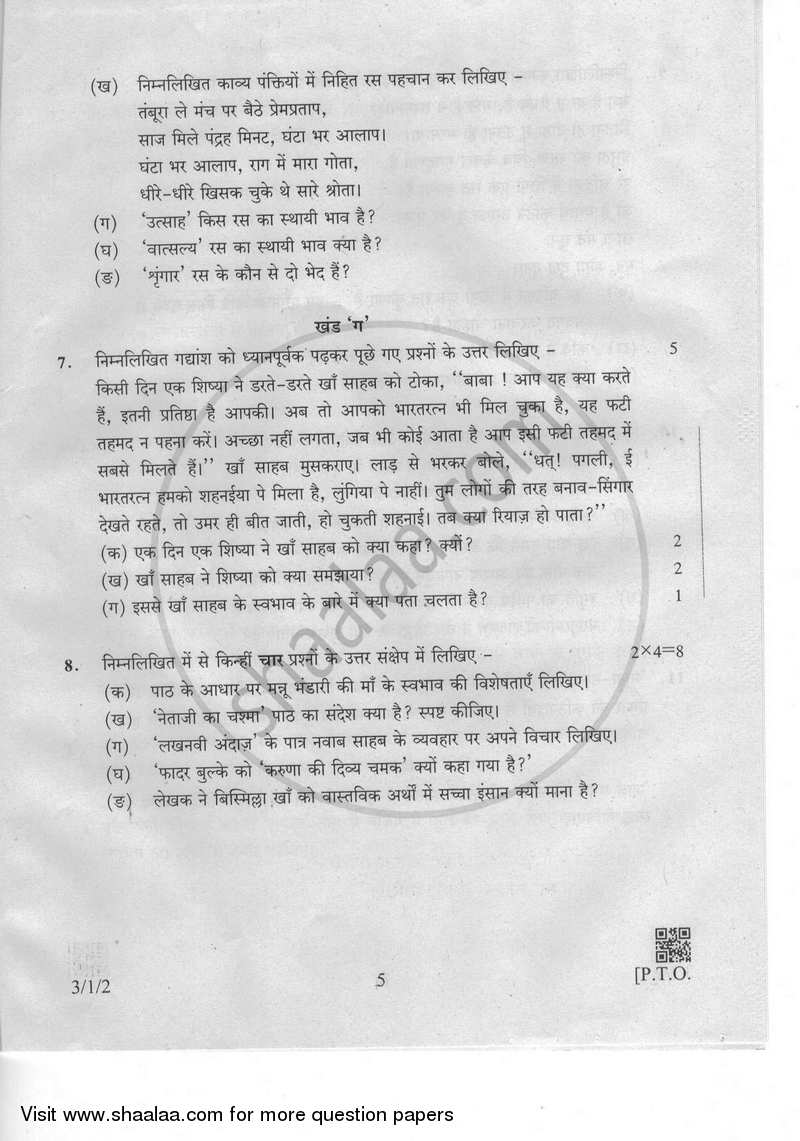 (ख) निम्नलिखित काव्य पंक्तियों में निहित रस पहचान कर लिखिए -
तंबूरा ले मंच पर बैठे प्रेमप्रताप,
साज मिले पंद्रह मिनट, घंटा भर आलाप।
घंटा भर आलाप, राग में मारा गोता,
धीरे-धीरे खिसक चुके थे सारे श्रोता।
(ग) ‘उत्साह’ किस रस का स्थायी भाव है?
(घ) ‘वात्सल्य’ रस का स्थायी भाव क्या है?
(ङ) ‘शृंगार’ रस के कौन से दो भेद हैं?
खंड ‘ग’
7. निम्नलिखित गद्यांश को ध्यानपूर्वक पढ़कर पूछे गए प्रश्नों के उत्तर लिखिए - 5
किसी दिन एक शिष्या ने डरते-डरते खाँ साहब को टोका, ‘‘बाबा ! आप यह क्या करते
हैं, इतनी प्रतिष्ठा है आपकी। अब तो आपको भारतरत्न भी मिल चुका है, यह फटी
तहमद न पहना करें। अच्छा नहीं लगता, जब भी कोई आता है आप इसी फटी तहमद में
सबसे मिलते हैं।’’ खाँ साहब मुसकराए। लाड़ से भरकर बोले, ‘‘धत्! पगली, ई
भारतरत्न हमको शहनईया पे मिला है, लुंगिया पे नाहीं। तुम लोगों की तरह बनाव-सिंगार
देखते रहते, तो उमर ही बीत जाती, हो चुकती शहनाई। तब क्या रियाज़ हो पाता?’’
(क) एक दिन एक शिष्या ने खाँ साहब को क्या कहा? क्यों? 2
(ख) खाँ साहब ने शिष्या को क्या समझाया? 2
(ग) इससे खाँ साहब के स्वभाव के बारे में क्या पता चलता है? 1
8. निम्नलिखित में से किन्हीं चार प्रश्नों के उत्तर संक्षेप में लिखिए - 2×4=8
(क) पाठ के आधार पर मन्नू भंडारी की माँ के स्वभाव की विशेषताएँ लिखिए।
(ख) ‘नेताजी का चश्मा’ पाठ का संदेश क्या है? स्पष्ट कीजिए।
(ग) ‘लखनवी अंदाज़’ के पात्र नवाब साहब के व्यवहार पर अपने विचार लिखिए।
(घ) ‘फादर बुल्के को ‘करुणा की दिव्य चमक’ क्यों कहा गया है?’
(ङ) लेखक ने बिस्मिल्ला खाँ को वास्तविक अर्थों में सच्चा इंसान क्यों माना है?
shaalaa.com
3/1/2 5 [P.T.O.
Visit www.shaalaa.com for more question papers